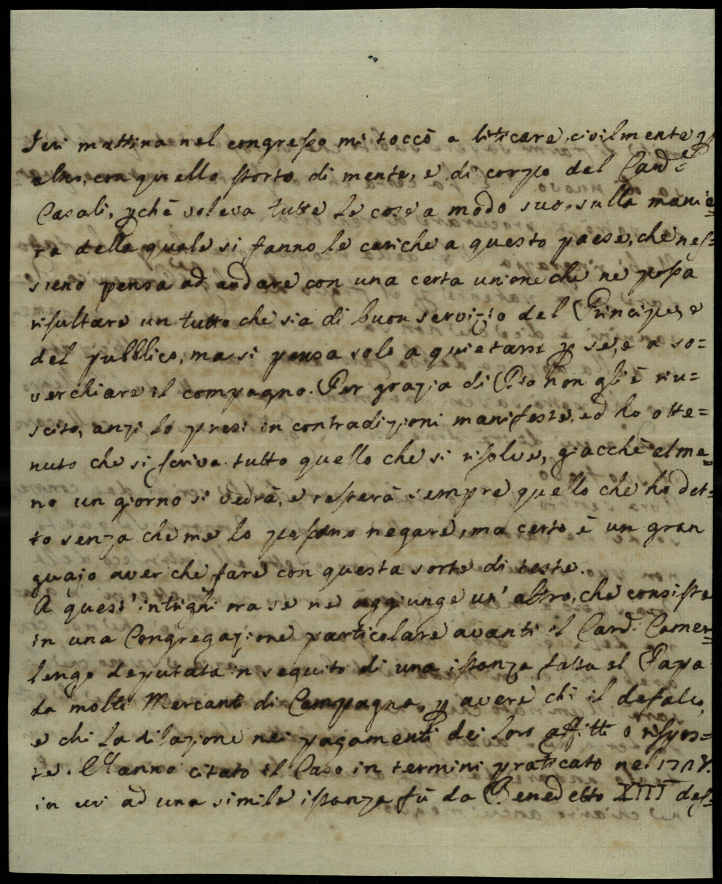 Jeri mattina nel congresso mi toccò a liticare civilmente p
altro, con quello storto di mente, e di corpo del Card.le
Casali, pchè voleva tutte le cose a modo suo sulla manie
ra della quale si fanno le cariche a questo paese, che nes=
suno pensa ad andare con una certa unione che ne possa
risultare un tutto che sia di buon servizio del Principe, e
del pubblico, ma si pensa solo a quietarsi p se, e a so=
verchiare il compagno. Per grazia di Dio non gli è riu=
scito, anzi lo presi in contradizioni manifeste, ed ho otte=
nuto che si scriva tutto quello che si risolve, giacchè alme=
no un giorno si vedrà, e resterà sempre quello che ho det=
to senza che me lo possano negare, ma certo è un gran
guajo aver che fare con questa sorte di teste.
A quest'intrighi ora se ne aggiunge un'altro, che consiste
in una Congregazione particolare avanti il Card. Camer=
lengo deputata in seguito di una istanza fatta al Papa
da molti Mercanti di Campagna, p avere chi il defalco,
e chi la dilazione nei pagamenti dei loro affitti o rispos=
te. Hanno citato il Caso in termini praticato nel
in cui ad una simile istanza fù da Benedetto XIII des=